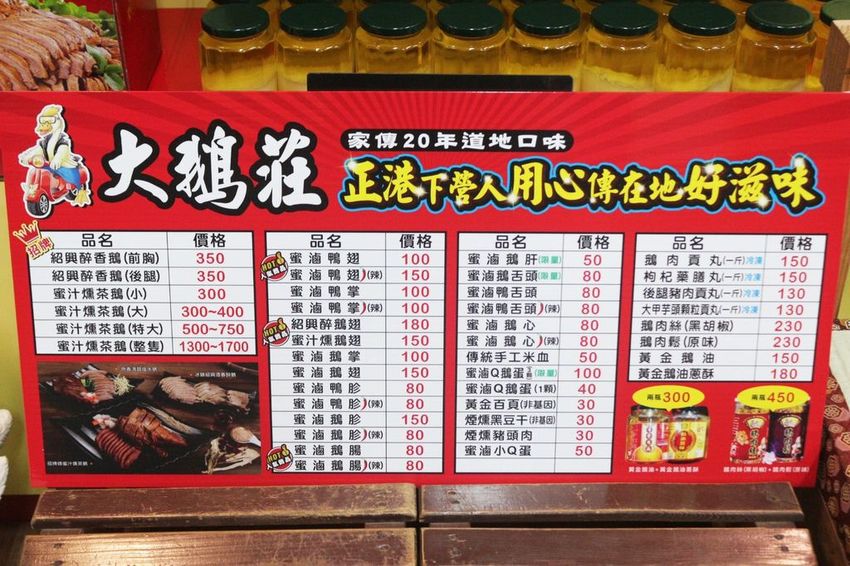 大鵝莊
家傳20年道地口味
正港下營人用心傳在地好滋味
招牌
品名 價格
紹興醉香鵝(前胸) 350
紹興醉香鵝(後腿) 350
蜜汁燻茶鵝(小) 300
蜜汁燻茶鵝(大) 300~400
蜜汁燻茶鵝(特大) 500~750
蜜汁燻茶鵝(整隻) 1300~1700
品名 價格
HOT 蜜滷鴨翅 100
蜜滷鴨翅(辣) 150
蜜滷鴨掌 100
蜜滷鴨掌(辣) 100
HOT 紹興醉鵝翅 180
蜜汁燻鵝翅 150
蜜滷鵝掌 100
蜜滷鵝翅 150
蜜滷鴨胗 80
蜜滷鴨胗(辣) 80
蜜滷鵝胗 150
HOT 蜜滷鵝腸 80
蜜滷鵝腸(辣) 80
品名 價格
蜜滷鵝肝(限量) 50
蜜滷鵝舌頭(限量) 80
蜜滷鴨舌頭 80
蜜滷鴨舌頭(辣) 80
蜜滷鵝心 80
蜜滷鵝心(辣) 80
傳統手工米血 50
蜜滷Q鵝蛋(限量) 100
蜜滷Q鵝蛋(1顆) 40
黃金百頁(非基因) 30
煙燻黑豆干(非基因) 30
煙燻豬頭肉 30
蜜滷小Q蛋 50
品名 價格
鵝肉貢丸(一斤)冷凍 150
枸杞藥膳丸(一斤)冷凍 150
後腿豬肉貢丸(一斤)冷凍 130
大甲芋頭顆粒貢丸(一斤)冷凍 130
鵝肉絲(黑胡椒) 230
鵝肉鬆(原味) 230
黃金鵝油 150
黃金鵝油蔥酥 180
兩瓶300
兩瓶450
黃金鵝油+黃金鵝油蔥酥
鵝肉絲(黑胡椒)+鵝肉鬆(原味)